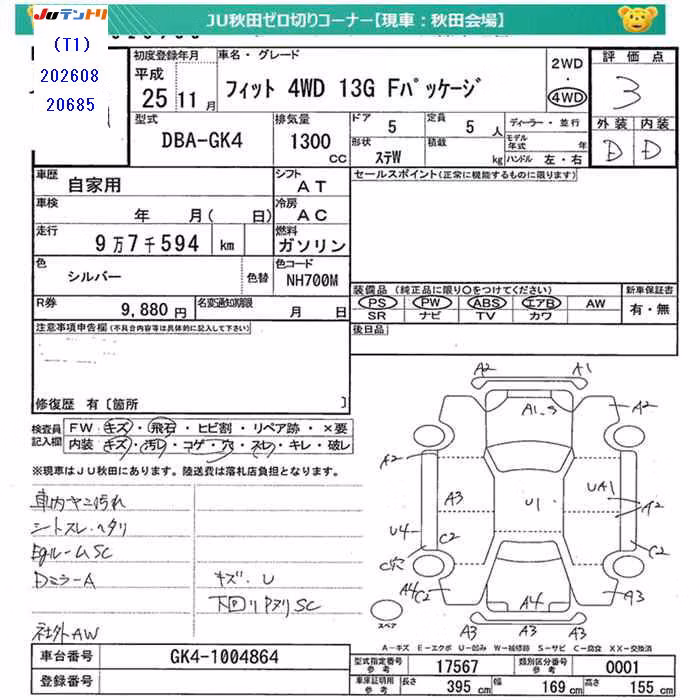 JUテントリ
JU秋田ゼロ切りコーナー【現車：秋田会場】
(T1)
202608
20685
初度登録年月
平成
25 11月
車名・グレード
フィット 4WD 13G Fパッケージ
2WD
・
4WD
評価点
3
外装 内装
D D
型式
DBA-GK4
排気量
1300
cc
ドア 5
定員 5 人
形状 ステW
積載 kg
ディーラー・並行
モデル年式 年
ハンドル 左・右
車歴 自家用
シフト AT
車検 年 月( 日)
冷房 AC
走行 9万7千594 km
燃料 ガソリン
色 シルバー 色替
色コード NH700M
R券 9,880円
名変通知期限 月 日
セールスポイント(正常に機能するものに限ります)
装備品 (純正品に限り○をつけてください)
PS PW ABS エアB AW
SR ナビ TV カワ
新車保証書
有・無
後日品
注意事項申告欄(不具合内容等は具体的に記入して下さい)
修復歴 有［箇所 ］
検査員記入欄
FW キズ・飛石・ヒビ割・リペア跡・×要
内装 キズ・汚レ・コゲ・穴・スレ・キレ・破レ
※現車はJU秋田にあります。陸送費は落札店負担となります。
車内ヤニ汚れ
シートスレ・ヘタリ
EgルームSC
DミラーA
キズ・U
下回りPヌリSC
社外AW
A2 A1
A1.S
A2
A2
A3
U1
UA1
A2
U4
C2
C2
C穴
A4
C2
A4
A3
A3 A3
スペア
A-キズ E-エクボ U-凹み W-補修跡 S-サビ C-腐食 XX-交換済
車台番号 GK4-1004864
登録番号
型式指定番号 参考 17567
類別区分番号 参考 0001
車庫証明用 参考
長さ 395 cm
幅 169 cm
高さ 155 cm